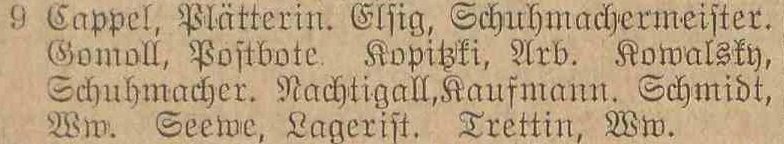 9 Cappel, Plätterin. Elsig, Schuhmachermeister.
Gomoll, Postbote. Kopitzki, Arb. Kowalsky,
Schuhmacher. Nachtigall, Kaufmann. Schmidt,
Ww. Seewe, Lagerist. Trettin, Ww.